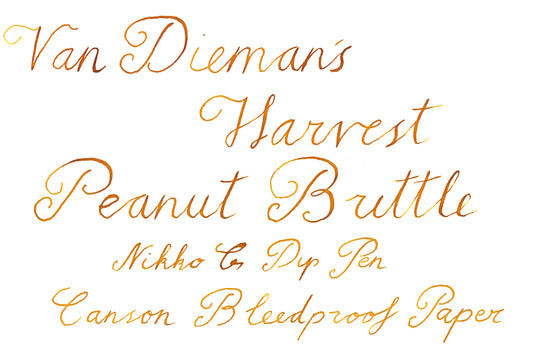 Van Dieman's
Harvest
Peanut Brittle
Nikko G Dip Pen
Canson Bleedproof Paper